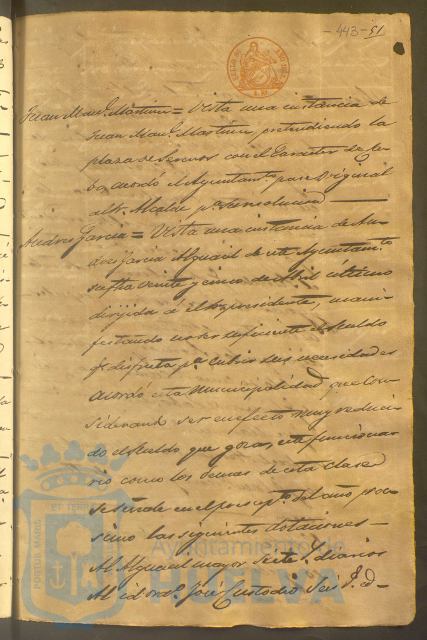 - 443 - 51
Juan Man.l Martin = Vista una instancia de
Juan Man.l Martin, pretendiendo la
plaza de Serenos con el Caracter de Ca-
bo acordó el Ayuntam.to pase original
al Sr. Alcalde p.a su resolucion
Andres Garcia = Vista una instancia de An-
dres Garcia Alguacil de este Ayuntam.to
su fha veinte y cinco de Abril ultimo
dirijida a el Sr presidente, mani-
festando no ser suficiente el sueldo
q.e disfruta p.a cubrir sus necesidades
acordó esta Municipalidad, que con-
siderand ser en efecto muy reduci-
do el sueldo que goza este funciona-
rio como los demas de esta clase
se señale en el presup.to del año proc-
simo las siguientes dotaciones -
Al Alguacil mayor siete r.s diarios
Al id ord.o José Custodio seis r.s d-
PORTUS MARIS
Ayuntamiento de
HUELVA